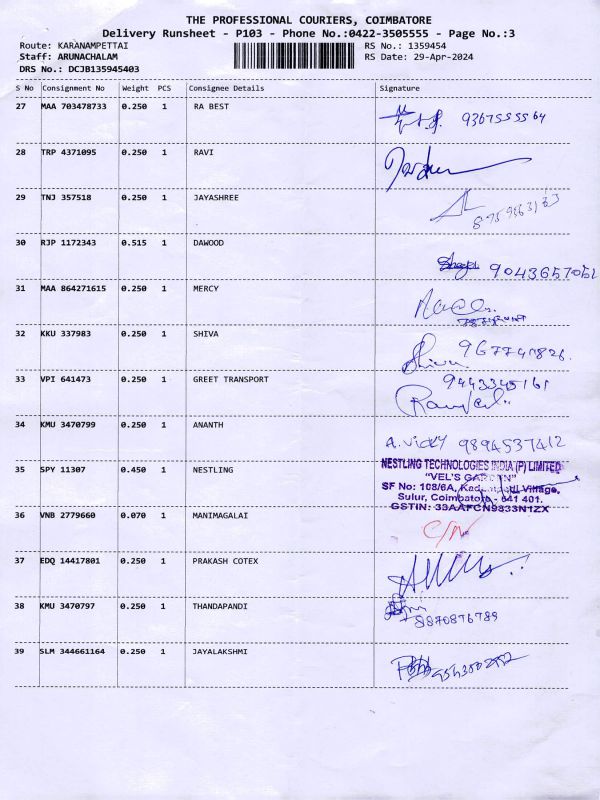 THE PROFESSIONAL COURIERS, COIMBATORE
Delivery Runsheet - P103 - Phone No.:0422-3505555 - Page No.:3
Route: KARANAMPETTAI
RS No.: 1359454
Staff: ARUNACHALAM
RS Date: 29-Apr-2024
DRS No.: DCJB135945403
S No Consignment No Weight PCS Consignee Details Signature
27 MAA 703478733 0.250 1 RA BEST 9367555564
28 TRP 4371095 0.250 1 RAVI
29 TNJ 357518 0.250 1 JAYASHREE
30 RJP 1172343 0.515 1 DAWOOD 9043657052
31 MAA 864271615 0.250 1 MERCY
32 KKU 337983 0.250 1 SHIVA
33 VPI 641473 0.250 1 GREET TRANSPORT
34 KMU 3470799 0.250 1 ANANTH A. Vicky 9894537412
35 SPY 11307 0.450 1 NESTLING
NESTLING TECHNOLOGIES INDIA (P) LIMITED
"VEL'S GARDEN"
SF No: 108/6A, Village,
Sulur, Coimbatore - 641 401.
GSTIN: 33AAFCN9833N1ZX
36 VNB 2779660 0.070 1 MANIMAGALAI
37 EDQ 14417801 0.250 1 PRAKASH COTEX
38 KMU 3470797 0.250 1 THANDAPANDI 8870876789
39 SLM 344661164 0.250 1 JAYALAKSHMI